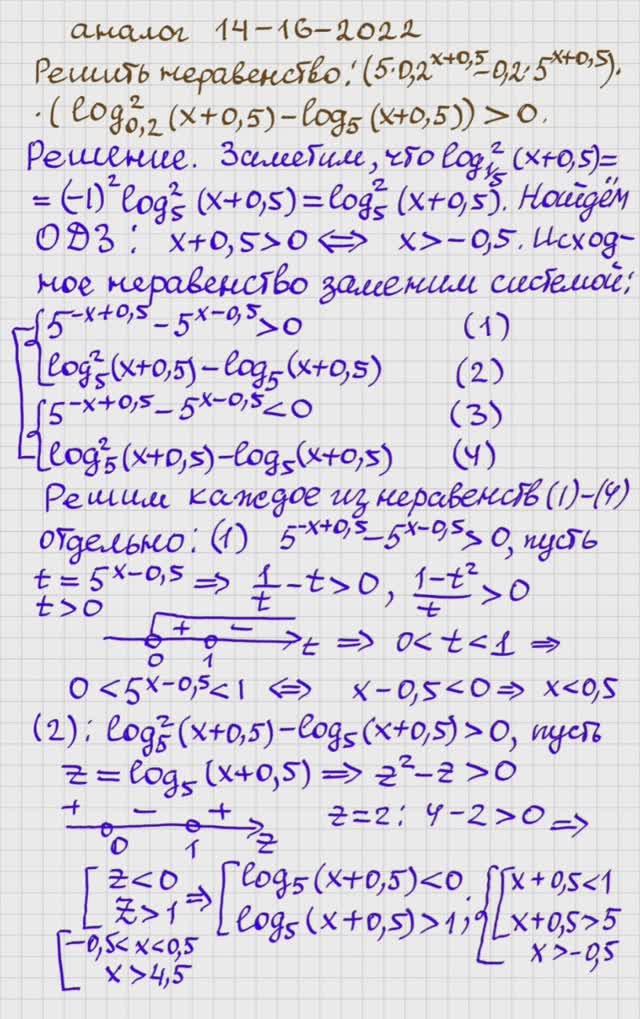 аналог 14-16-2022
Решить неравенство: (5·0,2^{x+0,5}-0,2·5^{x+0,5})·
·(log²_{0,2}(x+0,5)-log₅(x+0,5))>0.
Решение. Заметим, что log²_{1/5}(x+0,5)=
=(-1)²log²₅(x+0,5)=log²₅(x+0,5). Найдём
ОДЗ: x+0,5>0 ⟺ x>-0,5. Исход-
ное неравенство заменим системой:
5^{-x+0,5}-5^{x-0,5}>0 (1)
log²₅(x+0,5)-log₅(x+0,5) (2)
5^{-x+0,5}-5^{x-0,5}<0 (3)
log²₅(x+0,5)-log₅(x+0,5) (4)
Решим каждое из неравенств (1)-(4)
отдельно: (1) 5^{-x+0,5}-5^{x-0,5}>0, пусть
t=5^{x-0,5} ⟹ 1/t-t>0, (1-t²)/t>0
t>0
+ - t ⟹ 0<t<1 ⟹
0 1
0<5^{x-0,5}<1 ⟺ x-0,5<0 ⟹ x<0,5
(2): log²₅(x+0,5)-log₅(x+0,5)>0, пусть
z=log₅(x+0,5) ⟹ z²-z>0
+ - + z=2: 4-2>0 ⟹
0 1 z
[z<0 ⟹ [log₅(x+0,5)<0 {[x+0,5<1
z>1 log₅(x+0,5)>1; x+0,5>5
[-0,5<x<0,5 x>-0,5
x>4,5